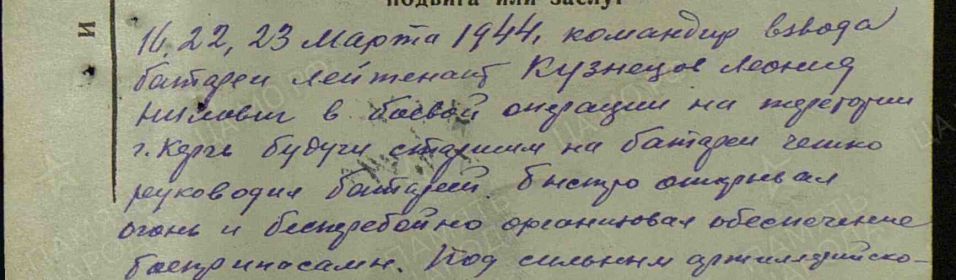 подвига или заслуг
16, 22, 23 Марта 1944, командир взвода
батареи лейтенант Кузнецов Леонид
Нилович в боевой операции на территории
г. Керчь будучи старшим на батареи четко
руководил батареей, быстро открывал
огонь и бесперебойно организовал обеспечение
боеприпасами. Под сильным артиллерийско-